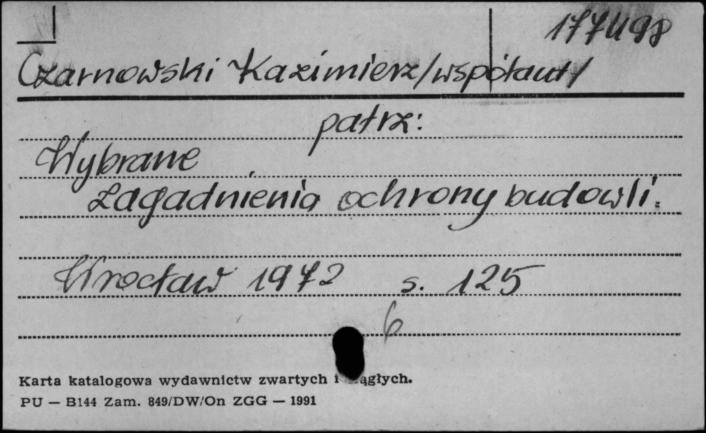 177498
Czarnowski Kazimierz/współaut/
patrz:
Wybrane
zagadnienia ochrony budowli.
Wrocław 1972 s. 125
6
Karta katalogowa wydawnictw zwartych i
PU — B144 Zam. 849/DW/On ZGG — 1991